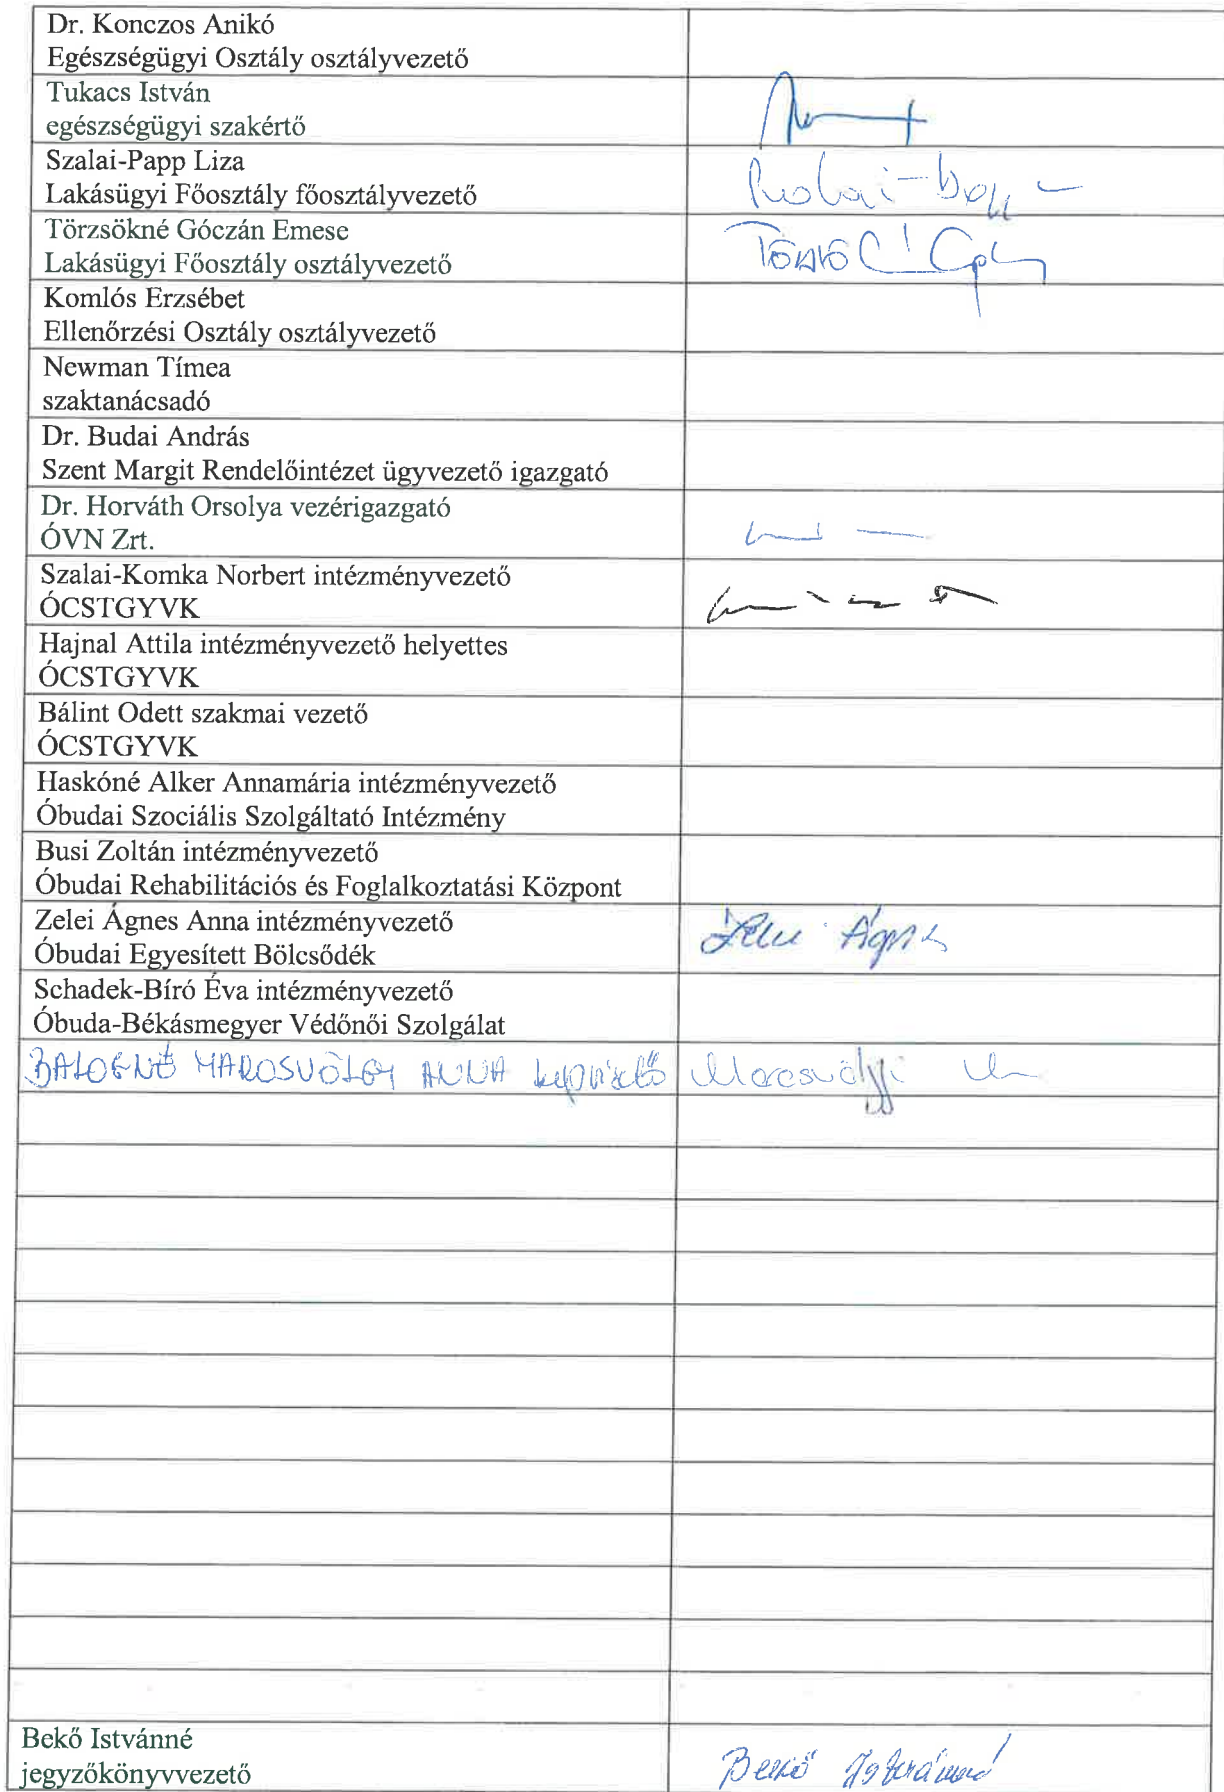 Dr. Konczos Anikó
Egészségügyi Osztály osztályvezető
Tukacs István
egészségügyi szakértő
Szalai-Papp Liza
Lakásügyi Főosztály főosztályvezető
Törzsökné Góczán Emese
Lakásügyi Főosztály osztályvezető
Komlós Erzsébet
Ellenőrzési Osztály osztályvezető
Newman Tímea
szaktanácsadó
Dr. Budai András
Szent Margit Rendelőintézet ügyvezető igazgató
Dr. Horváth Orsolya vezérigazgató
ÓVN Zrt.
Szalai-Komka Norbert intézményvezető
ÓCSTGYVK
Hajnal Attila intézményvezető helyettes
ÓCSTGYVK
Bálint Odett szakmai vezető
ÓCSTGYVK
Haskóné Alker Annamária intézményvezető
Óbudai Szociális Szolgáltató Intézmény
Busi Zoltán intézményvezető
Óbudai Rehabilitációs és Foglalkoztatási Központ
Zelei Ágnes Anna intézményvezető
Óbudai Egyesített Bölcsődék
Zelei Ágnes
Schadek-Bíró Éva intézményvezető
Óbuda-Békásmegyer Védőnői Szolgálat
BALOGNÉ MAROSVÖLGYI ANNA képviselő Marosvölgyi
Bekő Istvánné
jegyzőkönyvvezető
Bekő Istvánné